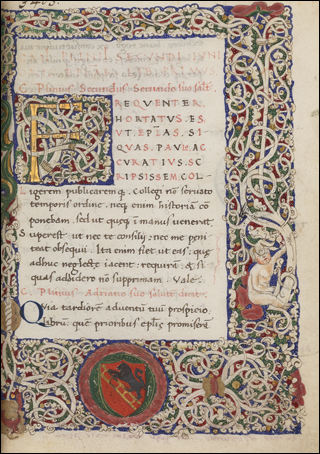 C. Plinius. Secundus suo salt.
FREQVENTER
HORTATVS. ES
VT. EPĪAS. SI
QVAS. PAVL. AC
CVRATIVS. SC
RIPSISSEM. COL
ligerem publicaremq. Collegi nō seruato
temporis ordine. neq; enim historiā cō
ponebam. sed ut queq; ī manus uenerat
Superest ut nec te consilij: nec me peni
teat obsequij. Ita enim fiet ut eas: que
adhuc neglecte iacent: requirā. & si
quas addidero nō supprimam. Vale.
C. Plinius Adriano suo salutē dicit.
Quia tardiorē aduentū tuū prospicio
librū. quē prioribus eplīs promiserā